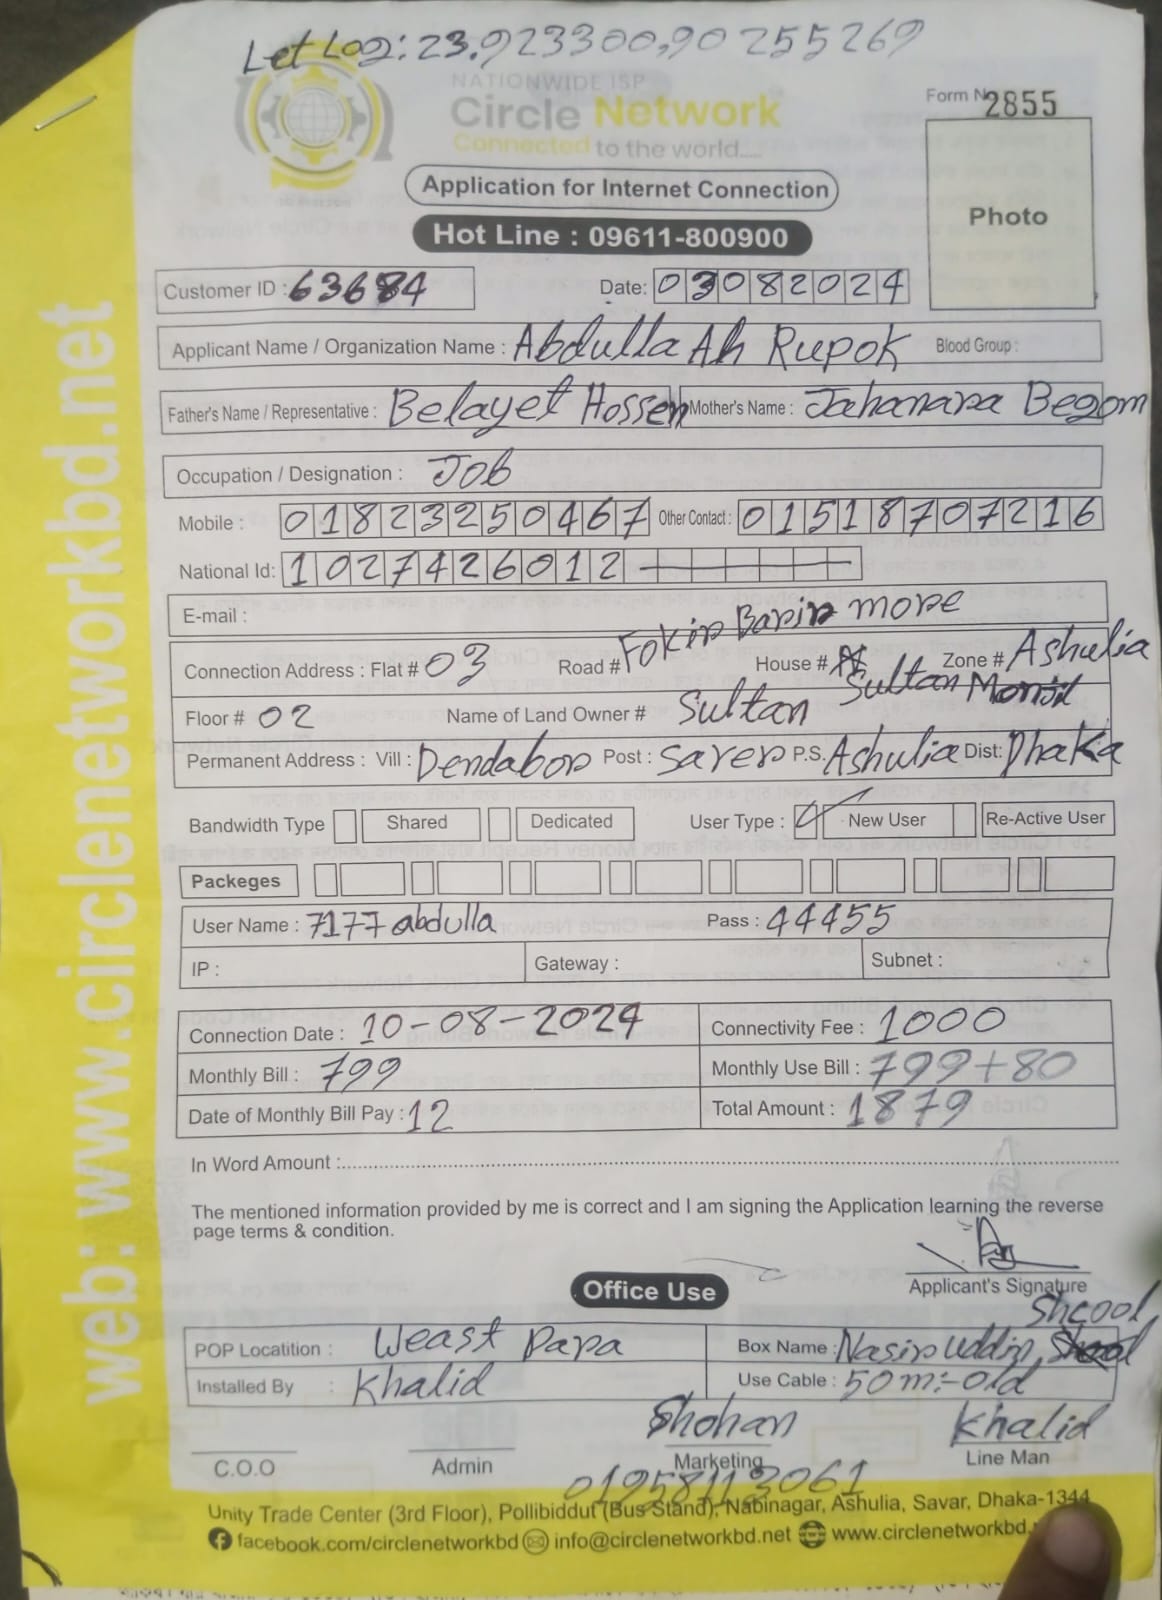 Let Log: 23.923300,90255269
NATIONWIDE ISP
Circle Network
Connected to the world....
Form No 2855
Photo
Application for Internet Connection
Hot Line : 09611-800900
Customer ID : 63684 Date: 03082024
Applicant Name / Organization Name : Abdulla Ah Rupok Blood Group :
Father's Name / Representative : Belayet Hossen Mother's Name : Jahanara Begom
Occupation / Designation : Job
Mobile : 01823250467 Other Contact : 01518707216
National Id: 1027426012
E-mail :
Connection Address : Flat # 03 Road # Fokir Barir more House # Sultan Monjil Zone # Ashulia
Floor # 02 Name of Land Owner # Sultan
Permanent Address : Vill : Dendabor Post : Saver P.S. Ashulia Dist: Dhaka
Bandwidth Type Shared Dedicated User Type : New User Re-Active User
Packeges
User Name : 7177abdulla Pass : 44455
IP : Gateway : Subnet :
Connection Date : 10-08-2024 Connectivity Fee : 1000
Monthly Bill : 799 Monthly Use Bill : 799+80
Date of Monthly Bill Pay : 12 Total Amount : 1879
In Word Amount :
The mentioned information provided by me is correct and I am signing the Application learning the reverse
page terms & condition.
Applicant's Signature
Office Use
POP Locatition : Weast Para Box Name : Nasir Uddin Shcool
Installed By : Khalid Use Cable : 50m:-old
Shohan Khalid
C.O.O Admin Marketing Line Man
01958113061
Unity Trade Center (3rd Floor), Pollibiddut (Bus Stand), Nabinagar, Ashulia, Savar, Dhaka-1344
facebook.com/circlenetworkbd info@circlenetworkbd.net www.circlenetworkbd.
web: www.circlenetworkbd.net